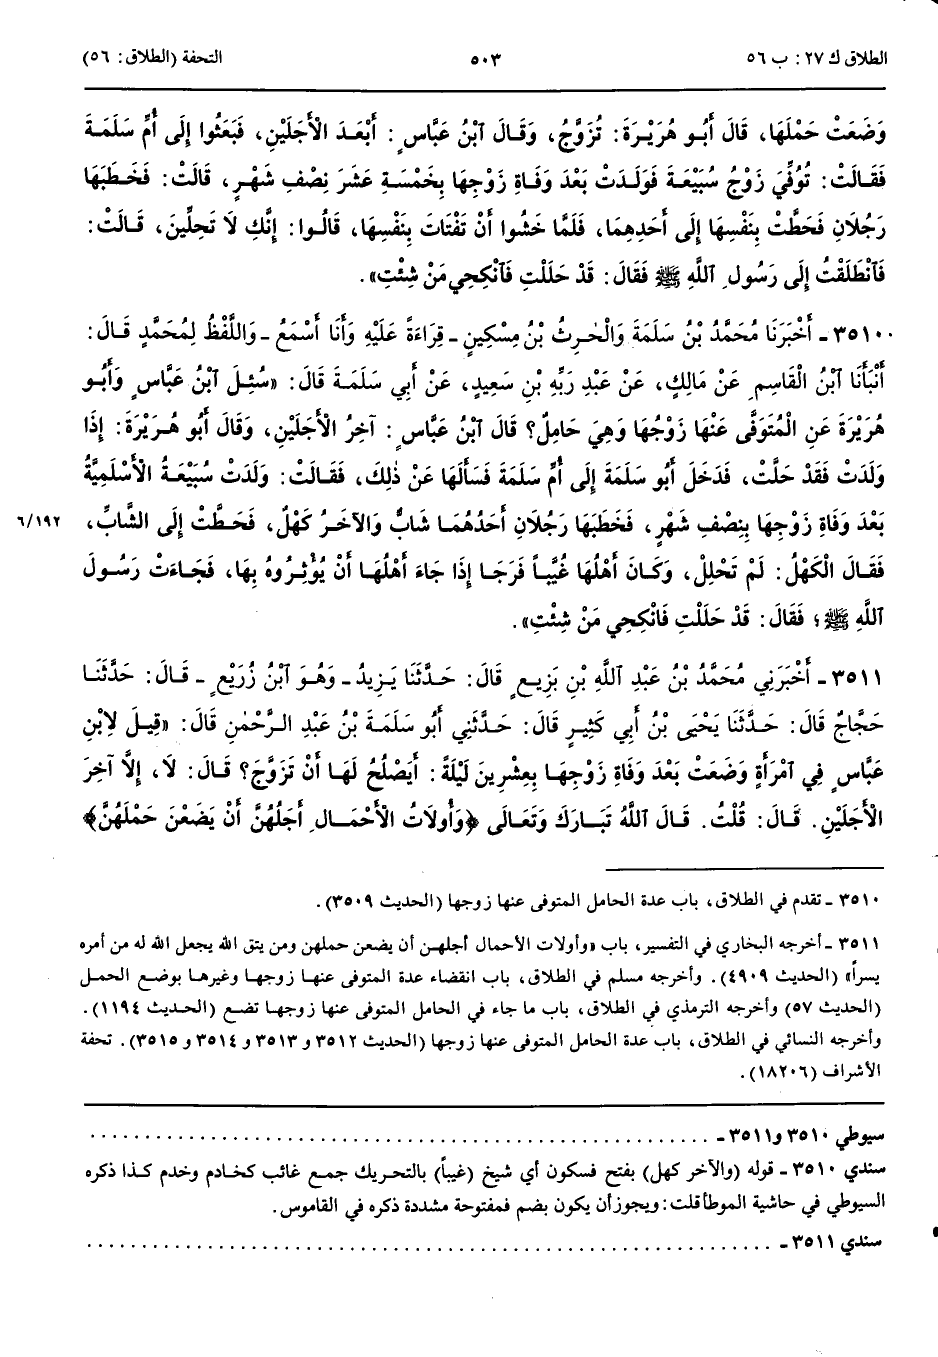 الطلاق ك ٢٧: ب ٥٦
٥٠٣
التحفة (الطلاق: ٥٦)
وَضَعَتْ حَمْلَهَا، قَالَ أَبُو هُرَيْرَةَ: تُزَوَّجُ، وَقَالَ ٱبْنُ عَبَّاسٍ: أَبْعَدَ الْأَجَلَيْنِ، فَبَعَثُوا إِلَى أُمِّ سَلَمَةَ
فَقَالَتْ: تُوُفِّيَ زَوْجُ سُبَيْعَةَ فَوَلَدَتْ بَعْدَ وَفَاةِ زَوْجِهَا بِخَمْسَةَ عَشَرَ نِصْفِ شَهْرٍ، قَالَتْ: فَخَطَبَهَا
رَجُلَانِ فَحَطَّتْ بِنَفْسِهَا إِلَى أَحَدِهِمَا، فَلَمَّا خَشُوا أَنْ تَفْتَاتَ بِنَفْسِهَا، قَالُوا: إِنَّكِ لَا تَحِلِّينَ، قَالَتْ:
فَٱنْطَلَقْتُ إِلَى رَسُولِ ٱللَّهِ ﷺ فَقَالَ: قَدْ حَلَلْتِ فَٱنْكِحِي مَنْ شِئْتِ».
٣٥١٠ - أَخْبَرَنَا مُحَمَّدُ بْنُ سَلَمَةَ وَالْحٰرِثُ بْنُ مِسْكِينٍ - قِرَاءَةً عَلَيْهِ وَأَنَا أَسْمَعُ - وَاللَّفْظُ لِمُحَمَّدٍ قَالَ:
أَنْبَأَنَا ٱبْنُ الْقَاسِمِ عَنْ مَالِكٍ، عَنْ عَبْدِ رَبِّهِ بْنِ سَعِيدٍ، عَنْ أَبِي سَلَمَةَ قَالَ: «سُئِلَ ٱبْنُ عَبَّاسٍ وَأَبُو
هُرَيْرَةَ عَنِ الْمُتَوَفَّى عَنْهَا زَوْجُهَا وَهِيَ حَامِلٌ؟ قَالَ ٱبْنُ عَبَّاسٍ: آخِرُ الْأَجَلَيْنِ، وَقَالَ أَبُو هُرَيْرَةَ: إِذَا
وَلَدَتْ فَقَدْ حَلَّتْ، فَدَخَلَ أَبُو سَلَمَةَ إِلَى أُمِّ سَلَمَةَ فَسَأَلَهَا عَنْ ذٰلِكَ، فَقَالَتْ: وَلَدَتْ سُبَيْعَةُ الْأَسْلَمِيَّةُ
بَعْدَ وَفَاةِ زَوْجِهَا بِنِصْفِ شَهْرٍ، فَخَطَبَهَا رَجُلَانِ أَحَدُهُمَا شَابٌّ وَالْآخَرُ كَهْلٌ، فَحَطَّتْ إِلَى الشَّابِّ،
٦/١٩٢
فَقَالَ الْكَهْلُ: لَمْ تَحْلِلْ، وَكَانَ أَهْلُهَا غُيَّباً فَرَجَا إِذَا جَاءَ أَهْلُهَا أَنْ يُؤْثِرُوهُ بِهَا، فَجَاءَتْ رَسُولَ
ٱللَّهِ ﷺ؛ فَقَالَ: قَدْ حَلَلْتِ فَانْكِحِي مَنْ شِئْتِ».
٣٥١١ - أَخْبَرَنِي مُحَمَّدُ بْنُ عَبْدِ ٱللَّهِ بْنِ بَزِيعٍ قَالَ: حَدَّثَنَا يَزِيدُ - وَهُوَ ٱبْنُ زُرَيْعٍ - قَالَ: حَدَّثَنَا
حَجَّاجٌ قَالَ: حَدَّثَنَا يَحْيَى بْنُ أَبِي كَثِيرٍ قَالَ: حَدَّثَنِي أَبُو سَلَمَةَ بْنُ عَبْدِ الرَّحْمٰنِ قَالَ: «قِيلَ لِابْنِ
عَبَّاسٍ فِي ٱمْرَأَةٍ وَضَعَتْ بَعْدَ وَفَاةِ زَوْجِهَا بِعِشْرِينَ لَيْلَةً: أَيَصْلُحُ لَهَا أَنْ تَزَوَّجَ؟ قَالَ: لَا، إِلَّا آخِرَ
الْأَجَلَيْنِ. قَالَ: قُلْتُ. قَالَ ٱللَّهُ تَبَارَكَ وَتَعَالَى ﴿وَأُولَاتُ الْأَحْمَالِ أَجَلُهُنَّ أَنْ يَضَعْنَ حَمْلَهُنَّ﴾
٣٥١٠ - تقدم في الطلاق، باب عدة الحامل المتوفى عنها زوجها (الحديث ٣٥٠٩).
٣٥١١ - أخرجه البخاري في التفسير، باب «وأولات الأحمال أجلهن أن يضعن حملهن ومن يتق الله يجعل الله له من أمره
يسراً» (الحديث ٤٩٠٩). وأخرجه مسلم في الطلاق، باب انقضاء عدة المتوفى عنها زوجها وغيرها بوضع الحمل
(الحديث ٥٧) وأخرجه الترمذي في الطلاق، باب ما جاء في الحامل المتوفى عنها زوجها تضع (الحديث ١١٩٤).
وأخرجه النسائي في الطلاق، باب عدة الحامل المتوفى عنها زوجها (الحديث ٣٥١٢ و ٣٥١٣ و ٣٥١٤ و ٣٥١٥). تحفة
الأشراف (١٨٢٠٦).
سيوطي ٣٥١٠ و٣٥١١ - ........................................................
سندي ٣٥١٠ - قوله (والآخر كهل) بفتح فسكون أي شيخ (غيباً) بالتحريك جمع غائب كخادم وخدم كذا ذكره
السيوطي في حاشية الموطأ قلت: ويجوز أن يكون بضم فمفتوحة مشددة ذكره في القاموس.
سندي ٣٥١١ - ........................................................